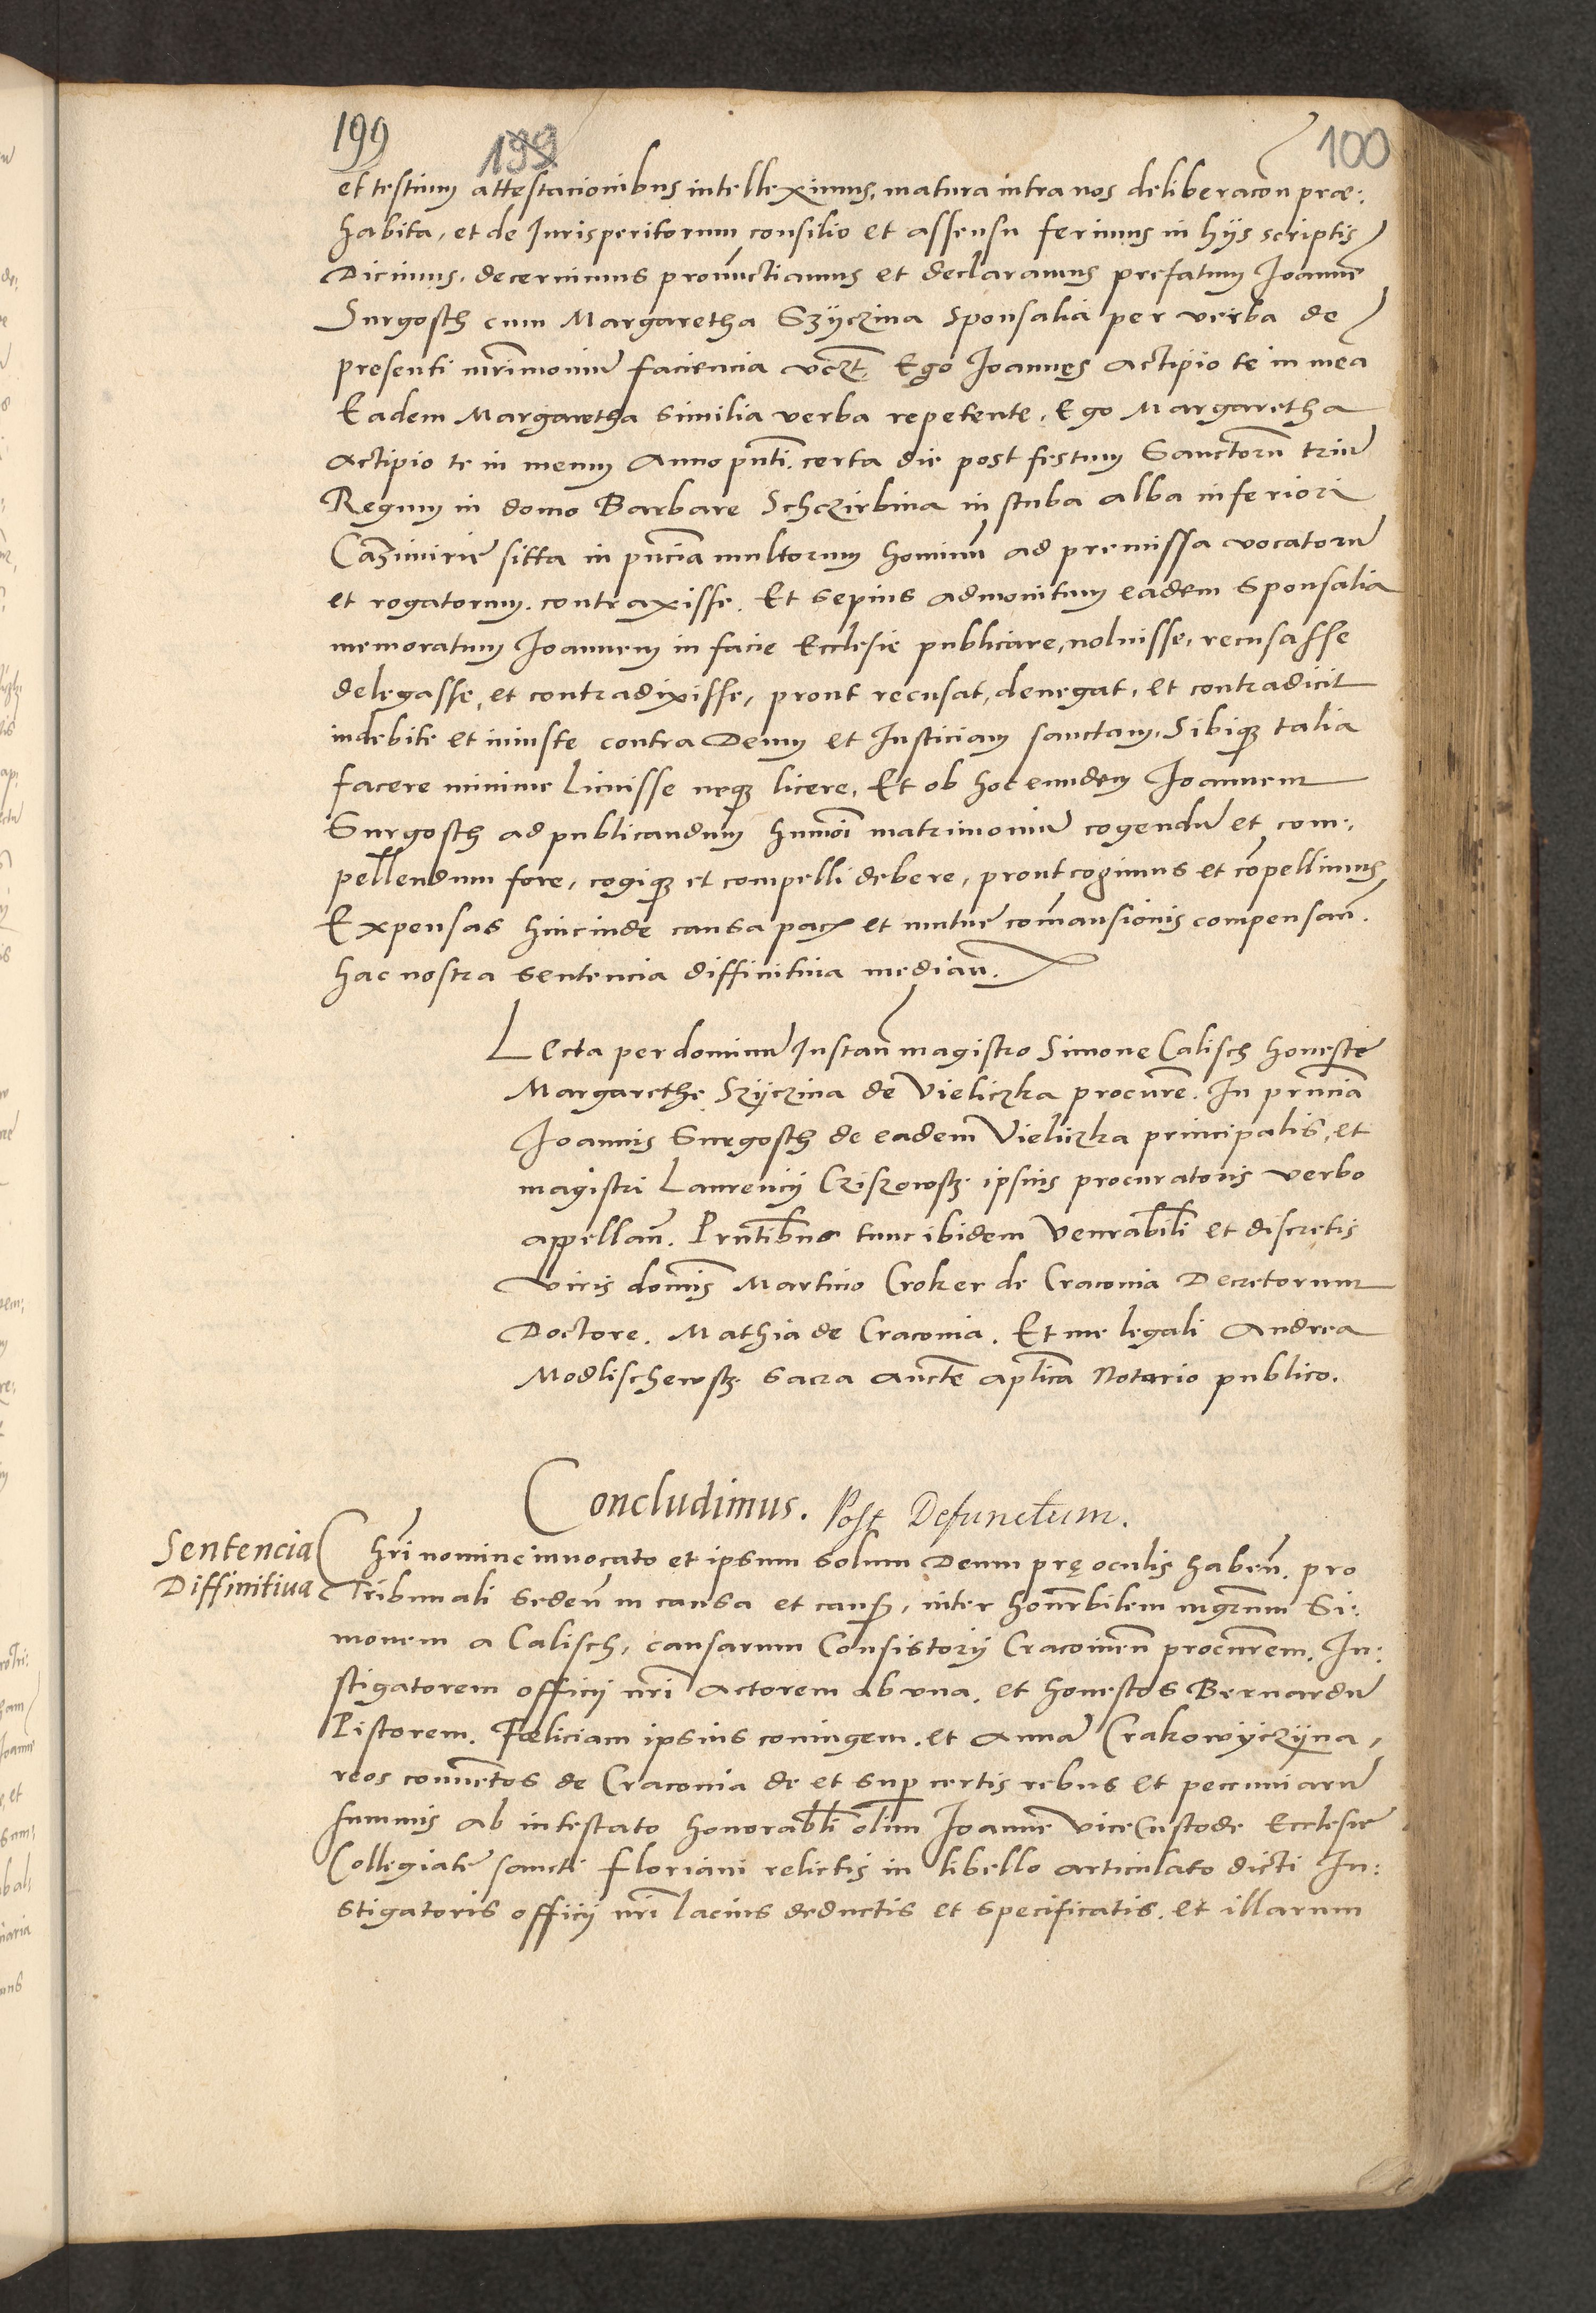 199
199
100
et testium attestacionibus intelleximus, matura intra nos deliberacōn præ:
habita, et de Jurisperitorum consilio et assensu ferimus in hijs scriptis
Dicimus, decernimus pronūctiamus et declaramus prefatum Joannē
Surgosch cum Margaretha Szÿczina Sponsalia per verba de
presenti mr̄imoniū faciencia vczt. Ego Joannes Actipio te in meā
Eadem Margaretha similia verba repetente, Ego Margaretha
Actipio te in meum Anno pn̄ti. certa die post festum Sanctorū triū
Regum in domo Barbare Schczirbina in stuba alba inferiori
Cazimirie sitta in pn̄cia multorum hominū ad premissa vocatorū
et rogatorum. contraxisse. Et sepius admonitum eadem Sponsalia
memoratum Joannem in facie Ecclesie publicare, noluisse, recusasse
delegasse, et contradixisse, prout recusat, denegat, et contradicit
indebite et iniuste contra Deum et Justiciam sanctam, Sibiqꝫ talia
facere minime licuisse neqꝫ licere, Et ob hoc eundem Joannem
Surgosch ad publicandum hmōi matrimoniū cogendū et com:
pellendum fore, cogiqꝫ et compelli debere, prout cogimus et cōpellimus,
Expensas hincinde causa pacis et mutue cōmansionis compensan̄.
hac nostra sentencia diffinitiua median̄.
Lecta per dominū Instan̄ magistro Simone Calisch honeste
Margarethe Szÿczina de Vieliczka procurē. In prn̄cia
Joannis Surgosch de eadem Vieliczka principalis, et
magistri Laurencij Cziszowsꝫ ipsius procuratoris verbo
appellan̄. Prn̄tibus tunc ibidem Venrabili et discretis
viris domīs Martino Croker de Craconia Decretorum
Doctore. Mathia de Craconia. Et me legali Andrea
Modlischewsꝫ sacra auctē aplīca Notario publico.
Concludimus. Post Defunctum.
Sentencia
Diffinitiua
Chr̄i nomine inuocato et ipsum solum Deum prę oculis haben̄. pro
Tribunali seden̄ in causa et caus̄, inter honr̄bilem mgrūm Si:
monem a Calisch, causarum Consistorij Cracouien̄ procur̄em. In:
stigatorem officij nr̄i Actorem ab vna. et honestos Bernardū
Pistorem. Fæliciam ipsius coniugem. et Annā Crakowÿczÿna,
reos conuentos de Craconia de et sup certis rebus et pecuniarū
summis ab intestato honorabli olim Joanne viceCustode Ecclesie
Collegiate sancti Floriani relictis in libello articulato dicti In:
stigatoris officij nr̄i lacius deductis et specificatis. et illarum